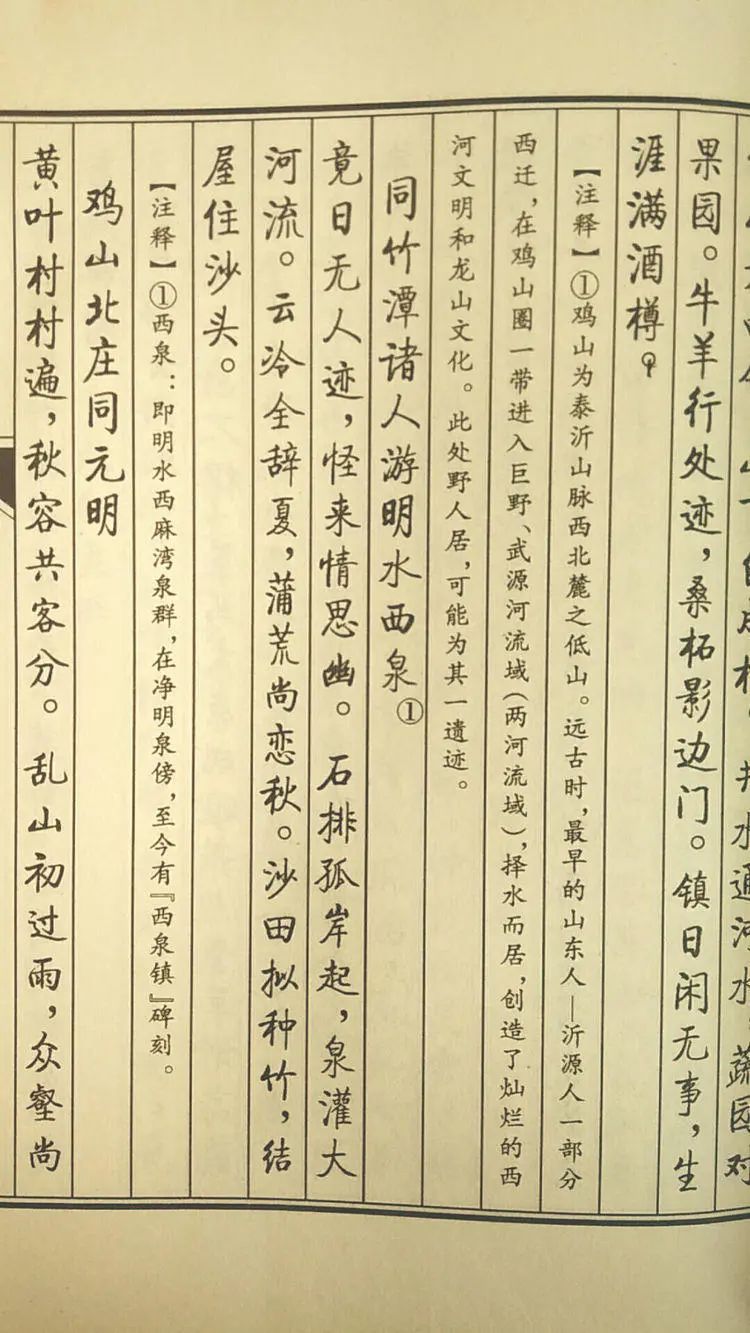 井水通河水，蔬园对
果园。牛羊行处迹，桑柘影边门。镇日闲无事，生
涯满酒樽。
【注释】①鸡山为泰沂山脉西北麓之低山。远古时，最早的山东人—沂源人一部分
西迁，在鸡山圈一带进入巨野、武源河流域（两河流域），择水而居，创造了灿烂的西
河文明和龙山文化。此处野人居，可能为其一遗迹。
同竹潭诸人游明水西泉①
竟日无人迹，怪来情思幽。石排孤岸起，泉灌大
河流。云冷全辞夏，蒲荒尚恋秋。沙田拟种竹，结
屋住沙头。
【注释】①西泉：即明水西麻湾泉群，在净明泉傍，至今有『西泉镇』碑刻。
鸡山北庄同元明
黄叶村村遍，秋容共客分。乱山初过雨，众壑尚